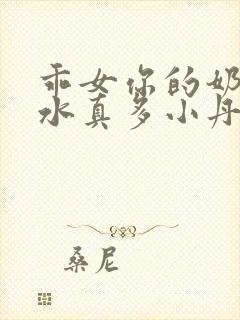 乖女你的奶
水真多小丹
桑尼